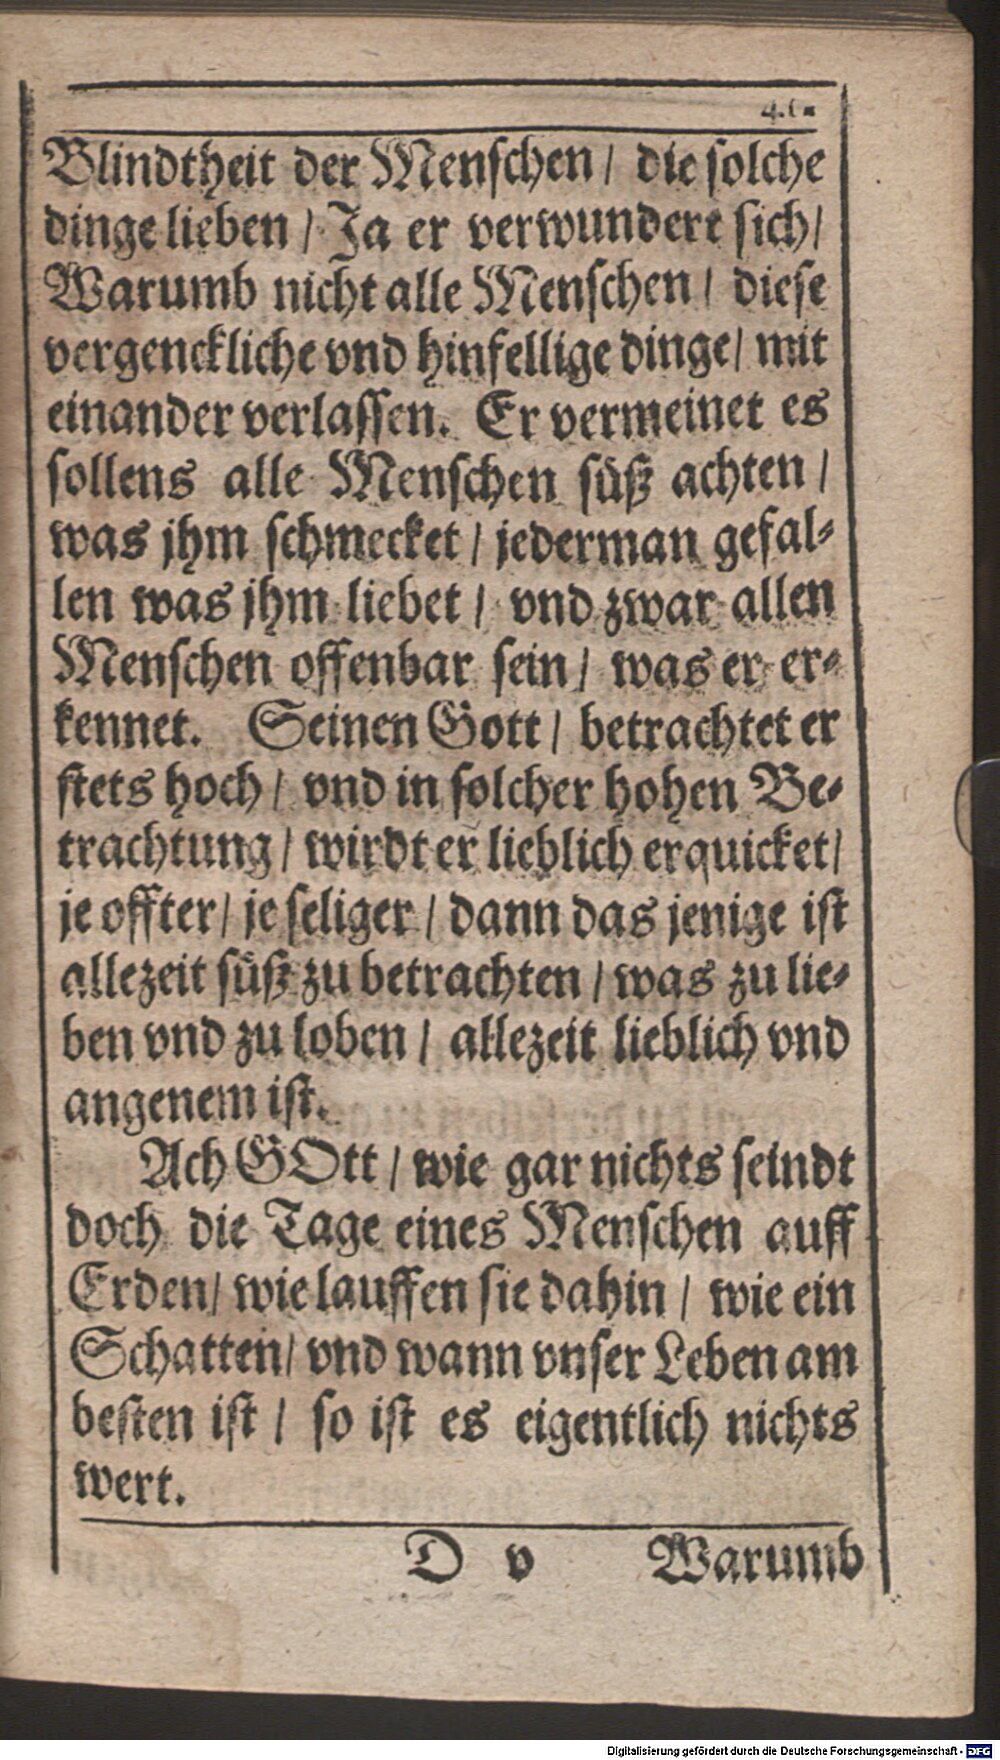 Blindtheit der Menschen / die solche
dinge lieben / Ja er verwundert sich /
Warumb nicht alle Menschen / diese
vergenckliche vnd hinfellige dinge / mit
einander verlassen. Er vermeinet es
sollens alle Menschen süß achten /
was jhm schmecket / jederman gefal-
len was jhm liebet / vnd zwar allen
Menschen offenbar sein / was er er-
kennet. Seinen Gott / betrachtet er
stets hoch / vnd in solcher hohen Be-
trachtung / wirdt er lieblich erquicket /
je offter / je seliger / dann das jenige ist
allezeit süß zu betrachten / was zu lie-
ben vnd zu loben / allezeit lieblich vnd
angenem ist.
Ach GOtt / wie gar nichts seindt
doch die Tage eines Menschen auff
Erden / wie lauffen sie dahin / wie ein
Schatten / vnd wann vnser Leben am
besten ist / so ist es eigentlich nichts
wert.
D v Warumb
Digitalisierung gefördert durch die Deutsche Forschungsgemeinschaft - DFG